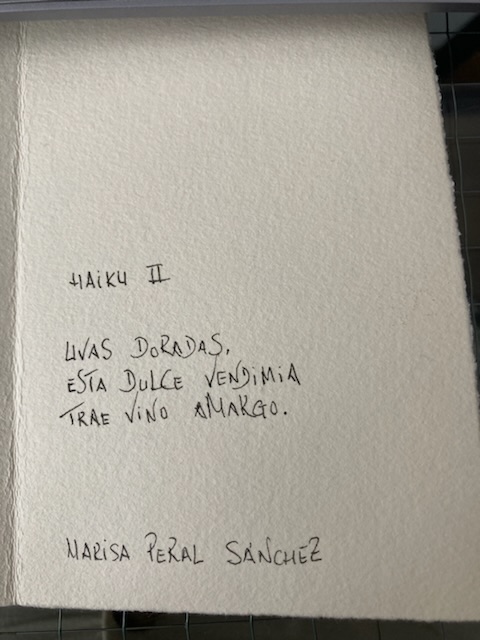 HAiKU II
UVAS DORADAS,
ESTA DULCE VENDIMIA
TRAE ViNO AMARGO.
MARiSA PERAL SÁNCHEZ